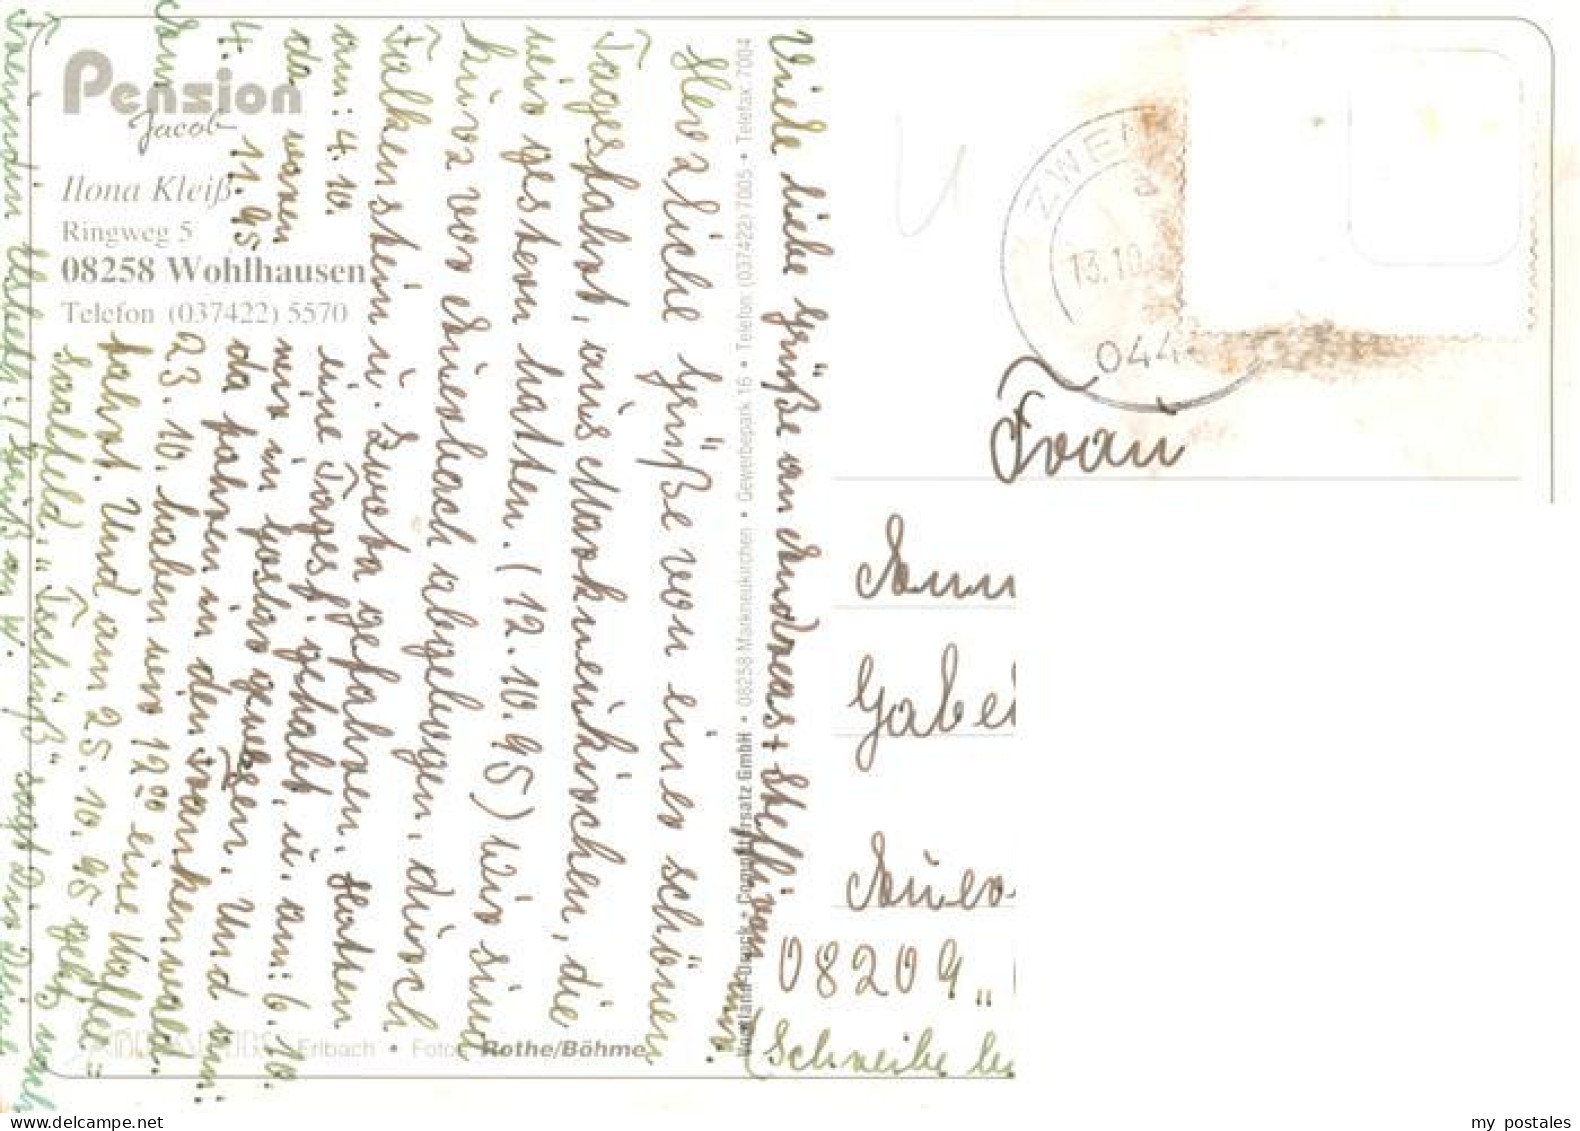 Pension
Jacob
Ilona Kleiß
Ringweg 5
08258 Wohlhausen
Telefon (037422) 5570
Viele liebe Grüße an Andreas + Steffi von
Herzliche Grüße von einer schönen
Tagesfahrt, aus Markneukirchen, die
wir gestern hatten. (12.10.95) Wir sind
kurz vor Auerbach abgebogen, durch
Falkenstein u. Zwota gefahren. Hatten
am: 4.10. eine Tagesf. gehabt, u. am: 6.10.
da waren wir in Goslar gewesen. Und am:
4. 11. 95 da fahren in den Frankenwald.
23. 10. haben wir 12⁰⁰ eine Kaffee-
fahrt. Und am 25. 10. 95 geht's nach
Saalfeld. "Tschüß" sagt Dir Deine
Freundin
Vogtland-Druck + Computersatz GmbH • 08258 Markneukirchen • Gewerbepark 16 • Telefon: (037422) 7005 • Telefax 7004
Erlbach • Fotos: Rothe/Böhme
ZWE
13.10
044
Frau
Gabe
Auer
08209 "
(Schreibe